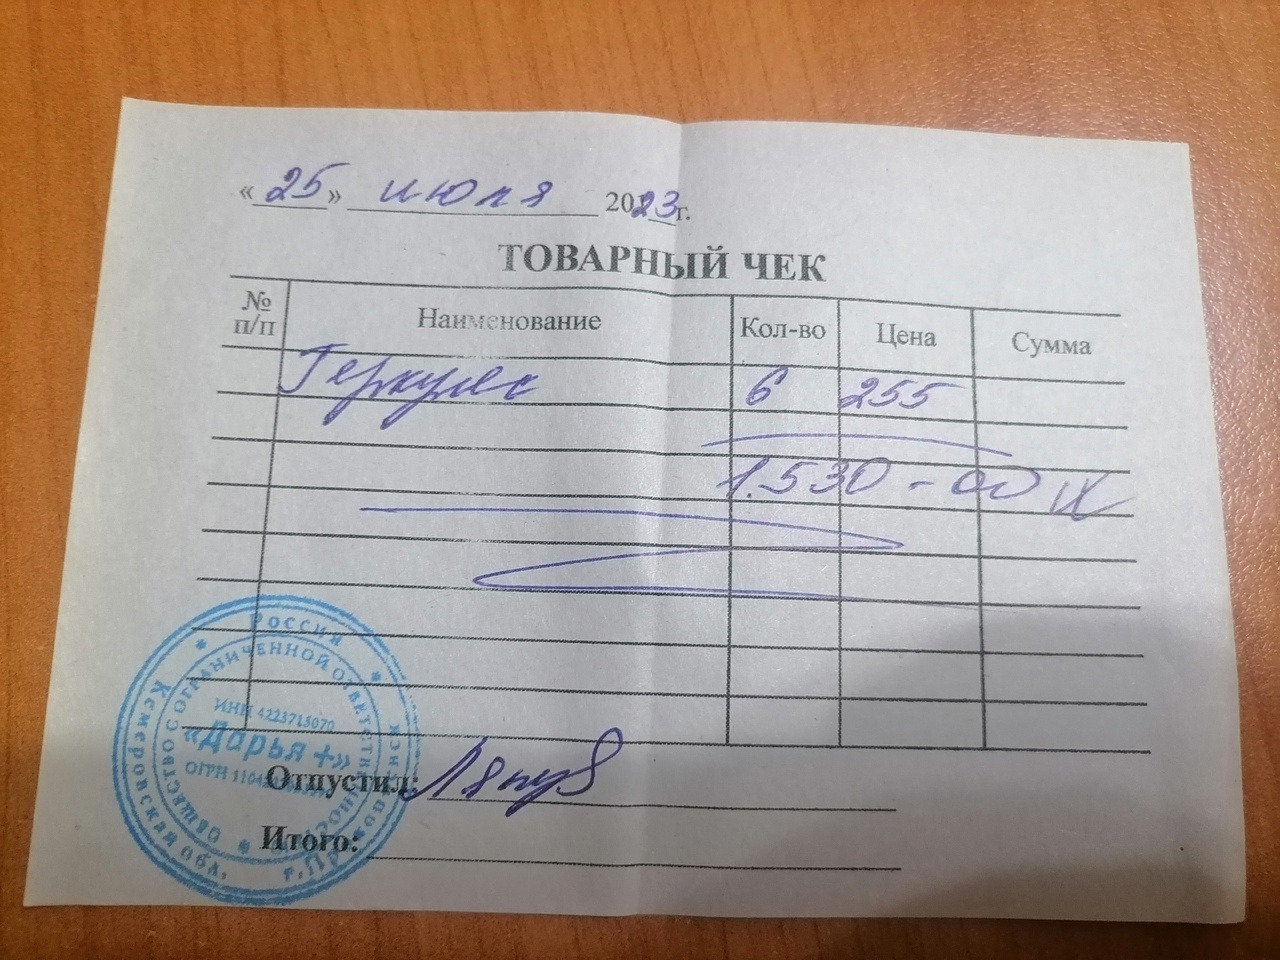 « 25 » июля 2023 г.
ТОВАРНЫЙ ЧЕК
№ п/п Наименование Кол-во Цена Сумма
Геркулес 6 255
1.530-00
Отпустил:
Итого:
РОССИЯ
Кемеровская обл.
ОБЩЕСТВО С ОГРАНИЧЕННОЙ ОТВЕТСТВЕННОСТЬЮ
ИНН 4223715070
«Дарья +»
ОГРН